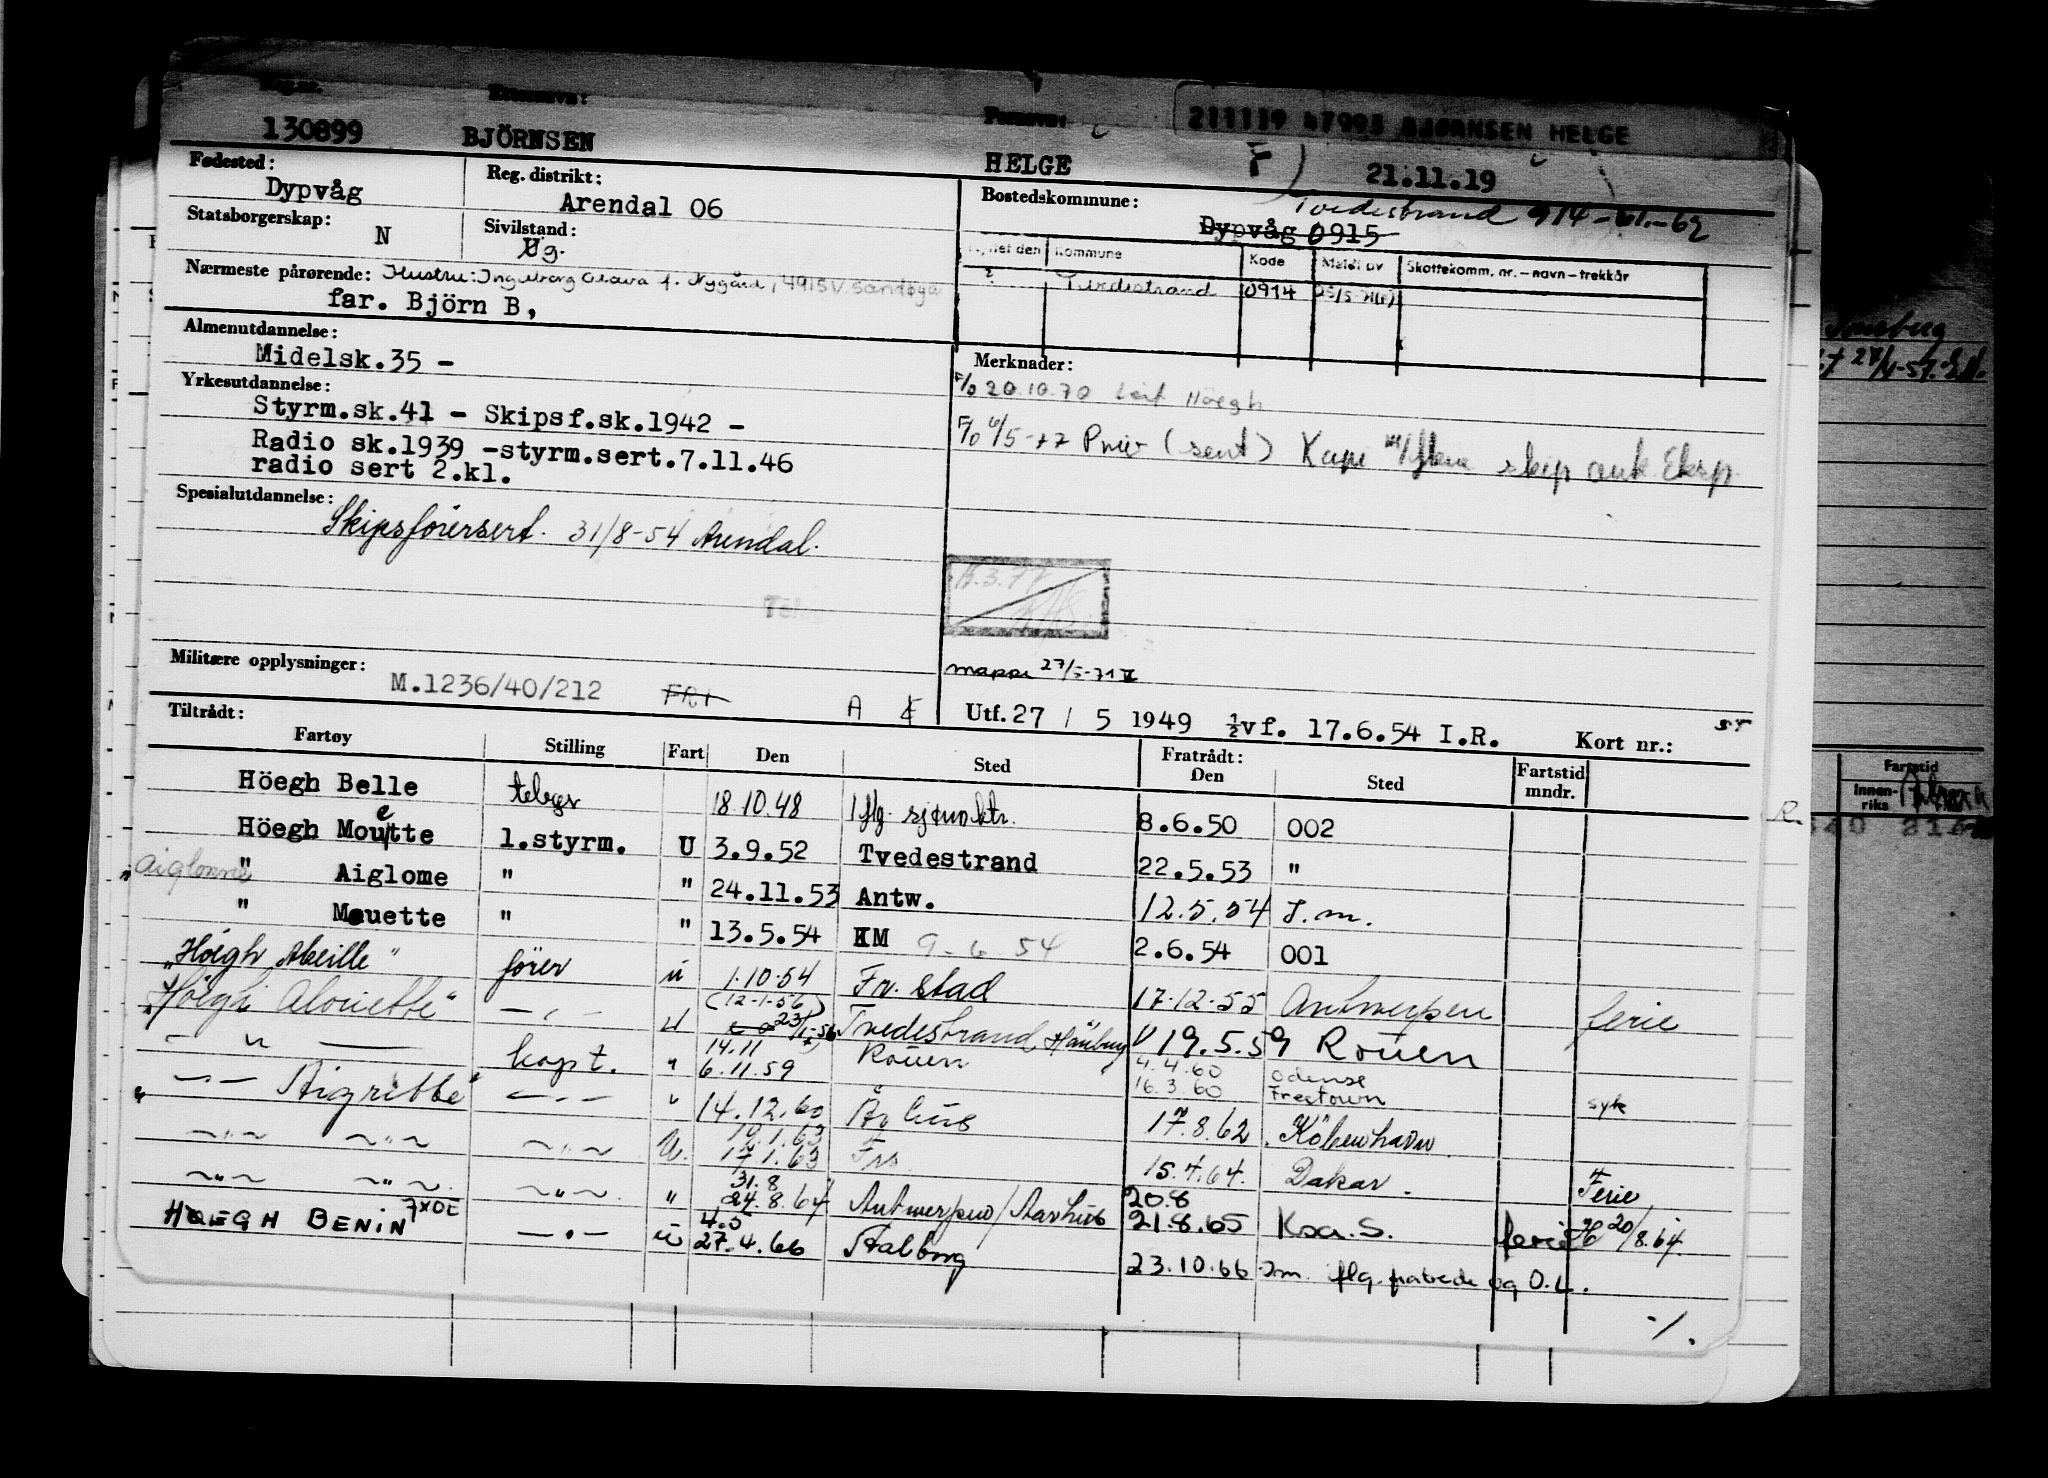 Reg.nr. Etternavn: Fornavn: 211119 47995 BJØRNSEN HELGE
130899 BJÖRNSEN HELGE 21.11.19
Fødested: Dypvåg Reg. distrikt: Arendal 06 Bostedskommune: Dypvåg 0915 Tvedestrand 914-61.-62
Statsborgerskap: N Sivilstand: Ug.
Flyttet den Kommune Kode Meldt av Skattekomm. nr. – navn – trekkår
Tvedestrand 0914
Nærmeste pårørende: Hustru: Ingeborg Olava f. Nygård, 4915 V. Sandøya
far. Björn B,
Almenutdannelse: Midelsk.35 -
Merknader:
F/o 20.10.70 Leif Höegh
Yrkesutdannelse:
Styrm.sk.41 - Skipsf.sk.1942 -
Radio sk.1939 -styrm.sert.7.11.46
radio sert 2.kl.
Spesialutdannelse:
Skipsförersert. 31/8-54 Arendal.
15.3.77
mappe 27/5-71
Militære opplysninger: M.1236/40/212 FRI A
Utf. 27 / 5 1949 ½vf. 17.6.54 I.R. Kort nr.:
Tiltrådt: Fratrådt:
Fartøy Stilling Fart Den Sted Den Sted Fartstid mndr.
Höegh Belle telegr 18.10.48 iflg. sjømktr. 8.6.50 002
Höegh Mouette 1.styrm. U 3.9.52 Tvedestrand 22.5.53 "
Aiglonne " Aiglome " " 24.11.53 Antw. 12.5.54 S.m.
" Mouette " " 13.5.54 HM 9-6 54 2.6.54 001
"Höegh Abeille" förer u 1.10.54 Fr.stad 17.12.55 Antwerpen ferie
"Höegh Alouette" — " — u (12-1-56) 23/1-56 Tvedestrand Hamburg 19.5.59 Rouen
— " — kapt. " 14.11 6.11.59 Rouen 4.4.60 Odense 16.3.60 Freetown syk
" — " — Aigrette" — " — " 14.12.60 Århus 17.8.62 Köbenhavn
— " — — " — — " — U. 12.1.63 17.1.63 Frs 15.4.64. Dakar. Ferie
— " — — " — — " — " 31.8 24.8.64 Antwerpen/Aarhus 20.8 21.8.65 K.sa.S. ferie 20/8.64.
HØEGH BENIN 7XOE — " — u 4.5 27.4.66 Aalborg 23.10.66 Sm. flg. frabede og O.L.
./.
Tønsberg
Fartstid
Innenriks